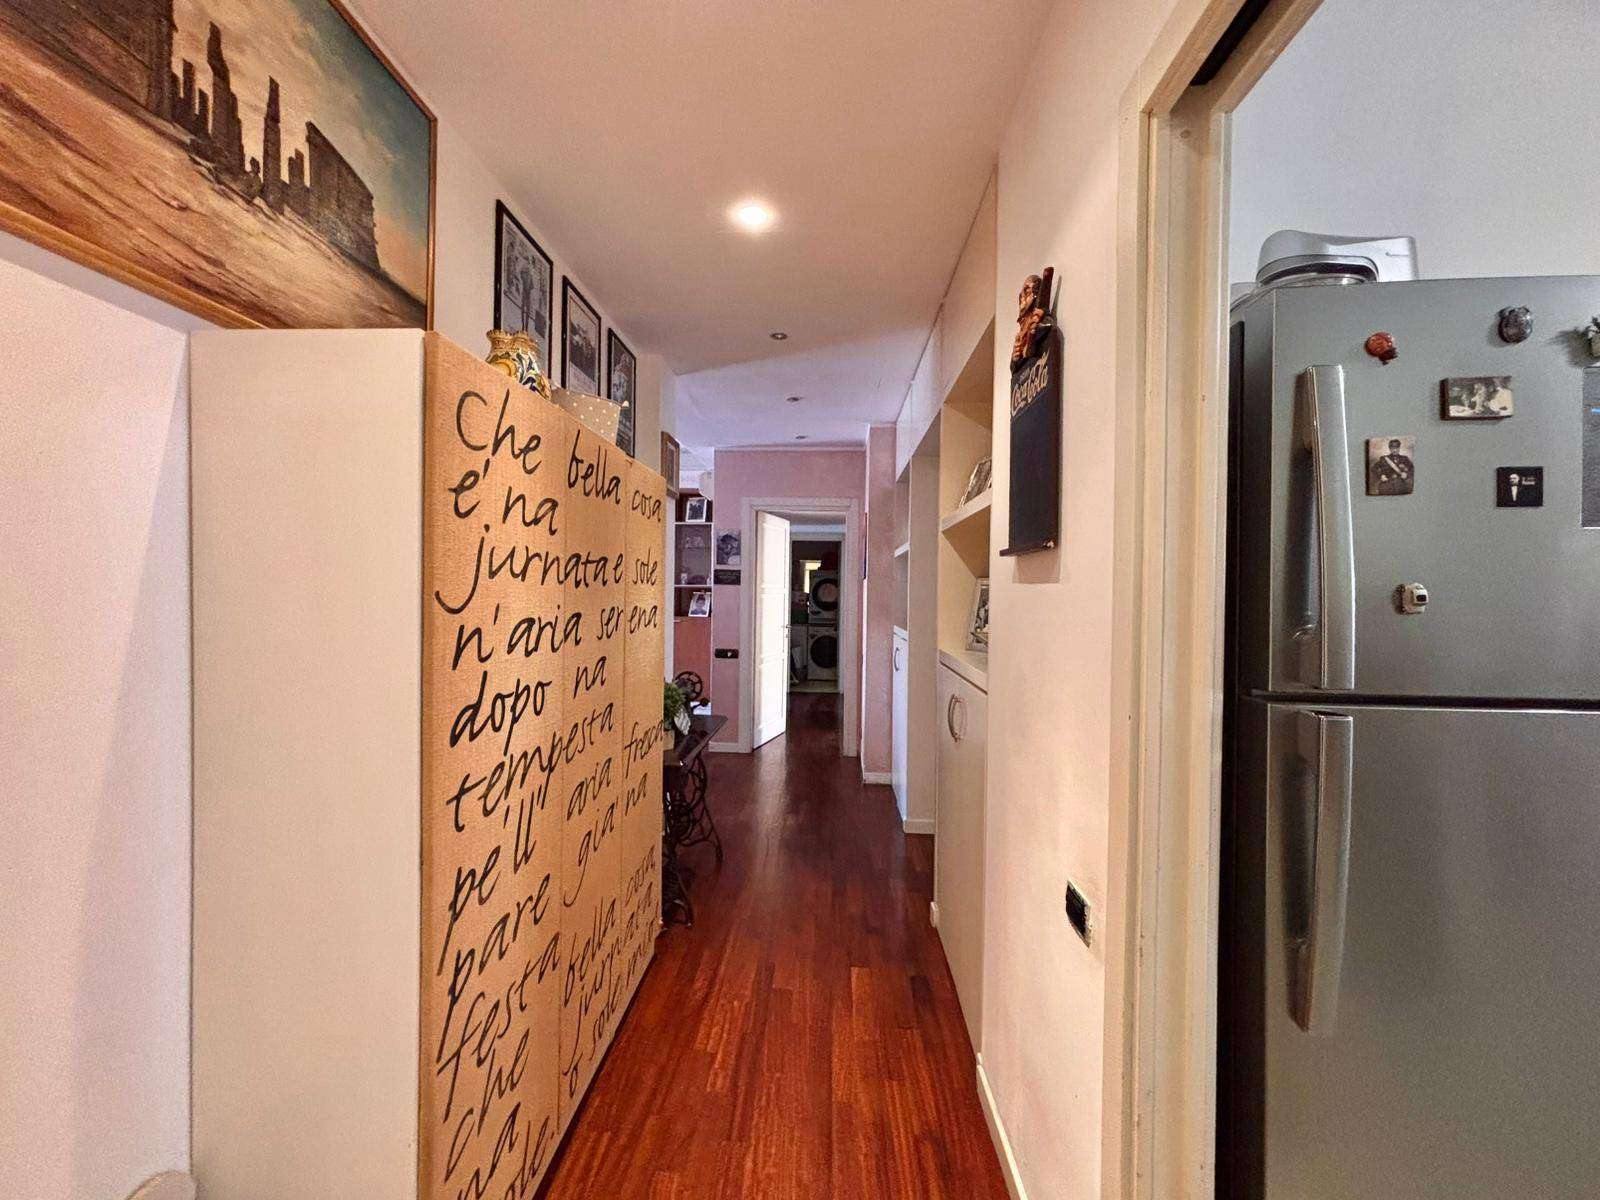 Che bella cosa
e' na
jurnata e sole
n'aria serena
dopo na
tempesta
pe' ll' aria fresca
pare gia' na
festa
che bella cosa,
na jurnata
'o sole mio!
Coca-Cola